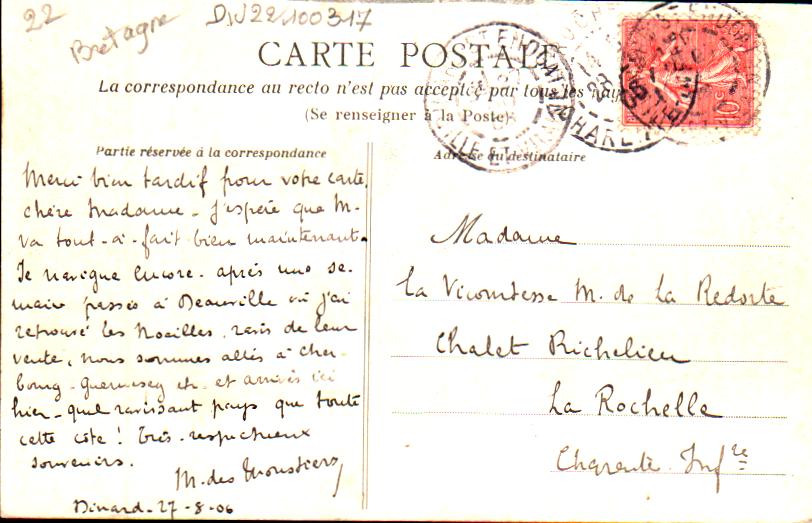 22
Bretagne
CARTE POSTALE
La correspondance au recto n'est pas acceptée par tous les pays
(Se renseigner à la Poste)
Partie réservée à la correspondance
Adresse du destinataire
Merci bien tardif pour votre carte,
chère Madame - J'espère que M-
va tout-à-fait bien maintenant.
Je navigue encore - après une se-
maine passée à Deauville où j'ai
retrouvé les Noailles, ravis de leur
vente, nous sommes allés à Cher-
bourg - Guernesey etc. et arrivés ici
hier - quel ravissant pays que toute
cette côte ! Très respectueux
souvenirs.
M. des Moustiers
Dinard - 27-8-06
Madame
La Vicomtesse M. de La Redorte
Chalet Richelieu
La Rochelle
Charente Infre
10